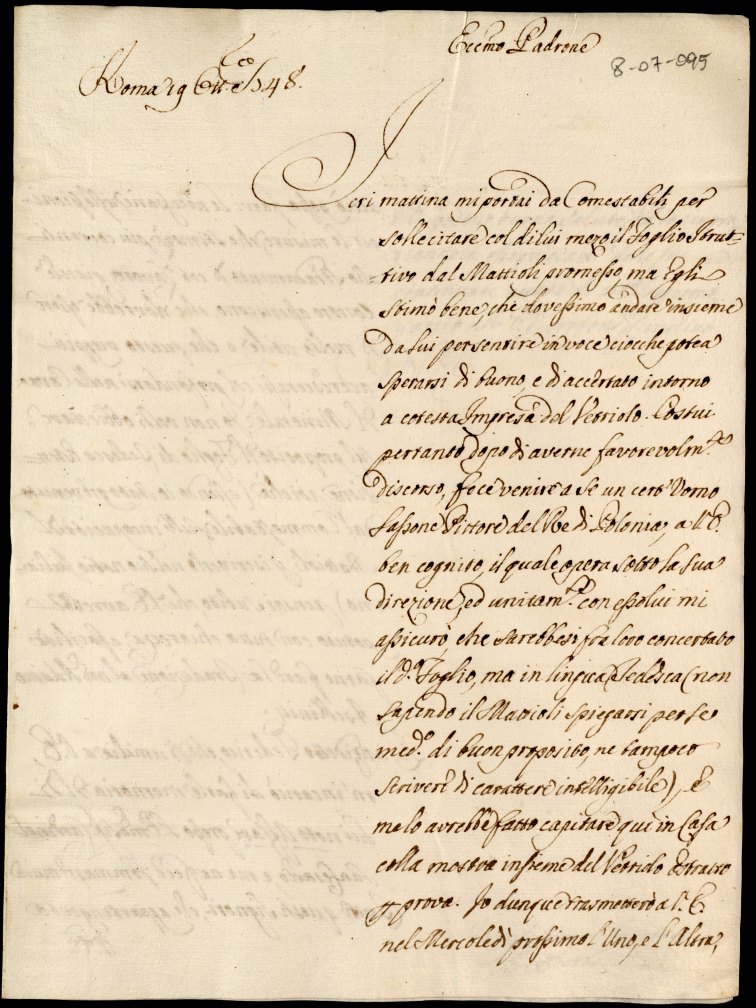 Eccmo Padrone
8-07-095
Roma 19 Ott.e 1748.
Ieri mattina mi portai da Comestabili per
sollecitare col di lui mezo il Foglio Istrut-
=tivo dal Mattioli promesso, ma Egli
stimò bene, che dovessimo andare insieme
da lui per sentire in voce ciocche potea
sperarsi di buono, e di accertato intorno
a cotesta Impresa del Vetriolo. Costui
pertanto dopo di averne favorevolm.te
discorso, fece venire a se un certo Uomo
Sassone Pittore del Re di Polonia, a V.E.
ben cognito, il quale opera sotto la sua
direzione, ed unitam.te con essolui mi
assicurò, che sarebbesi fra loro concertato
il d.o Foglio, ma in lingua Tedesca (non
sapendo il Mattioli spiegarsi per se
med.o di buon proposito, ne tampoco
scrivere di carattere intelligibile), e
me lo avrebbe fatto capitare qui in Casa
colla mostra insieme del Vetriolo Estratto
p prova. Io dunque trasmetterò a V.E.
nel Mercoledì prossimo l'Uno, e l'Altra,